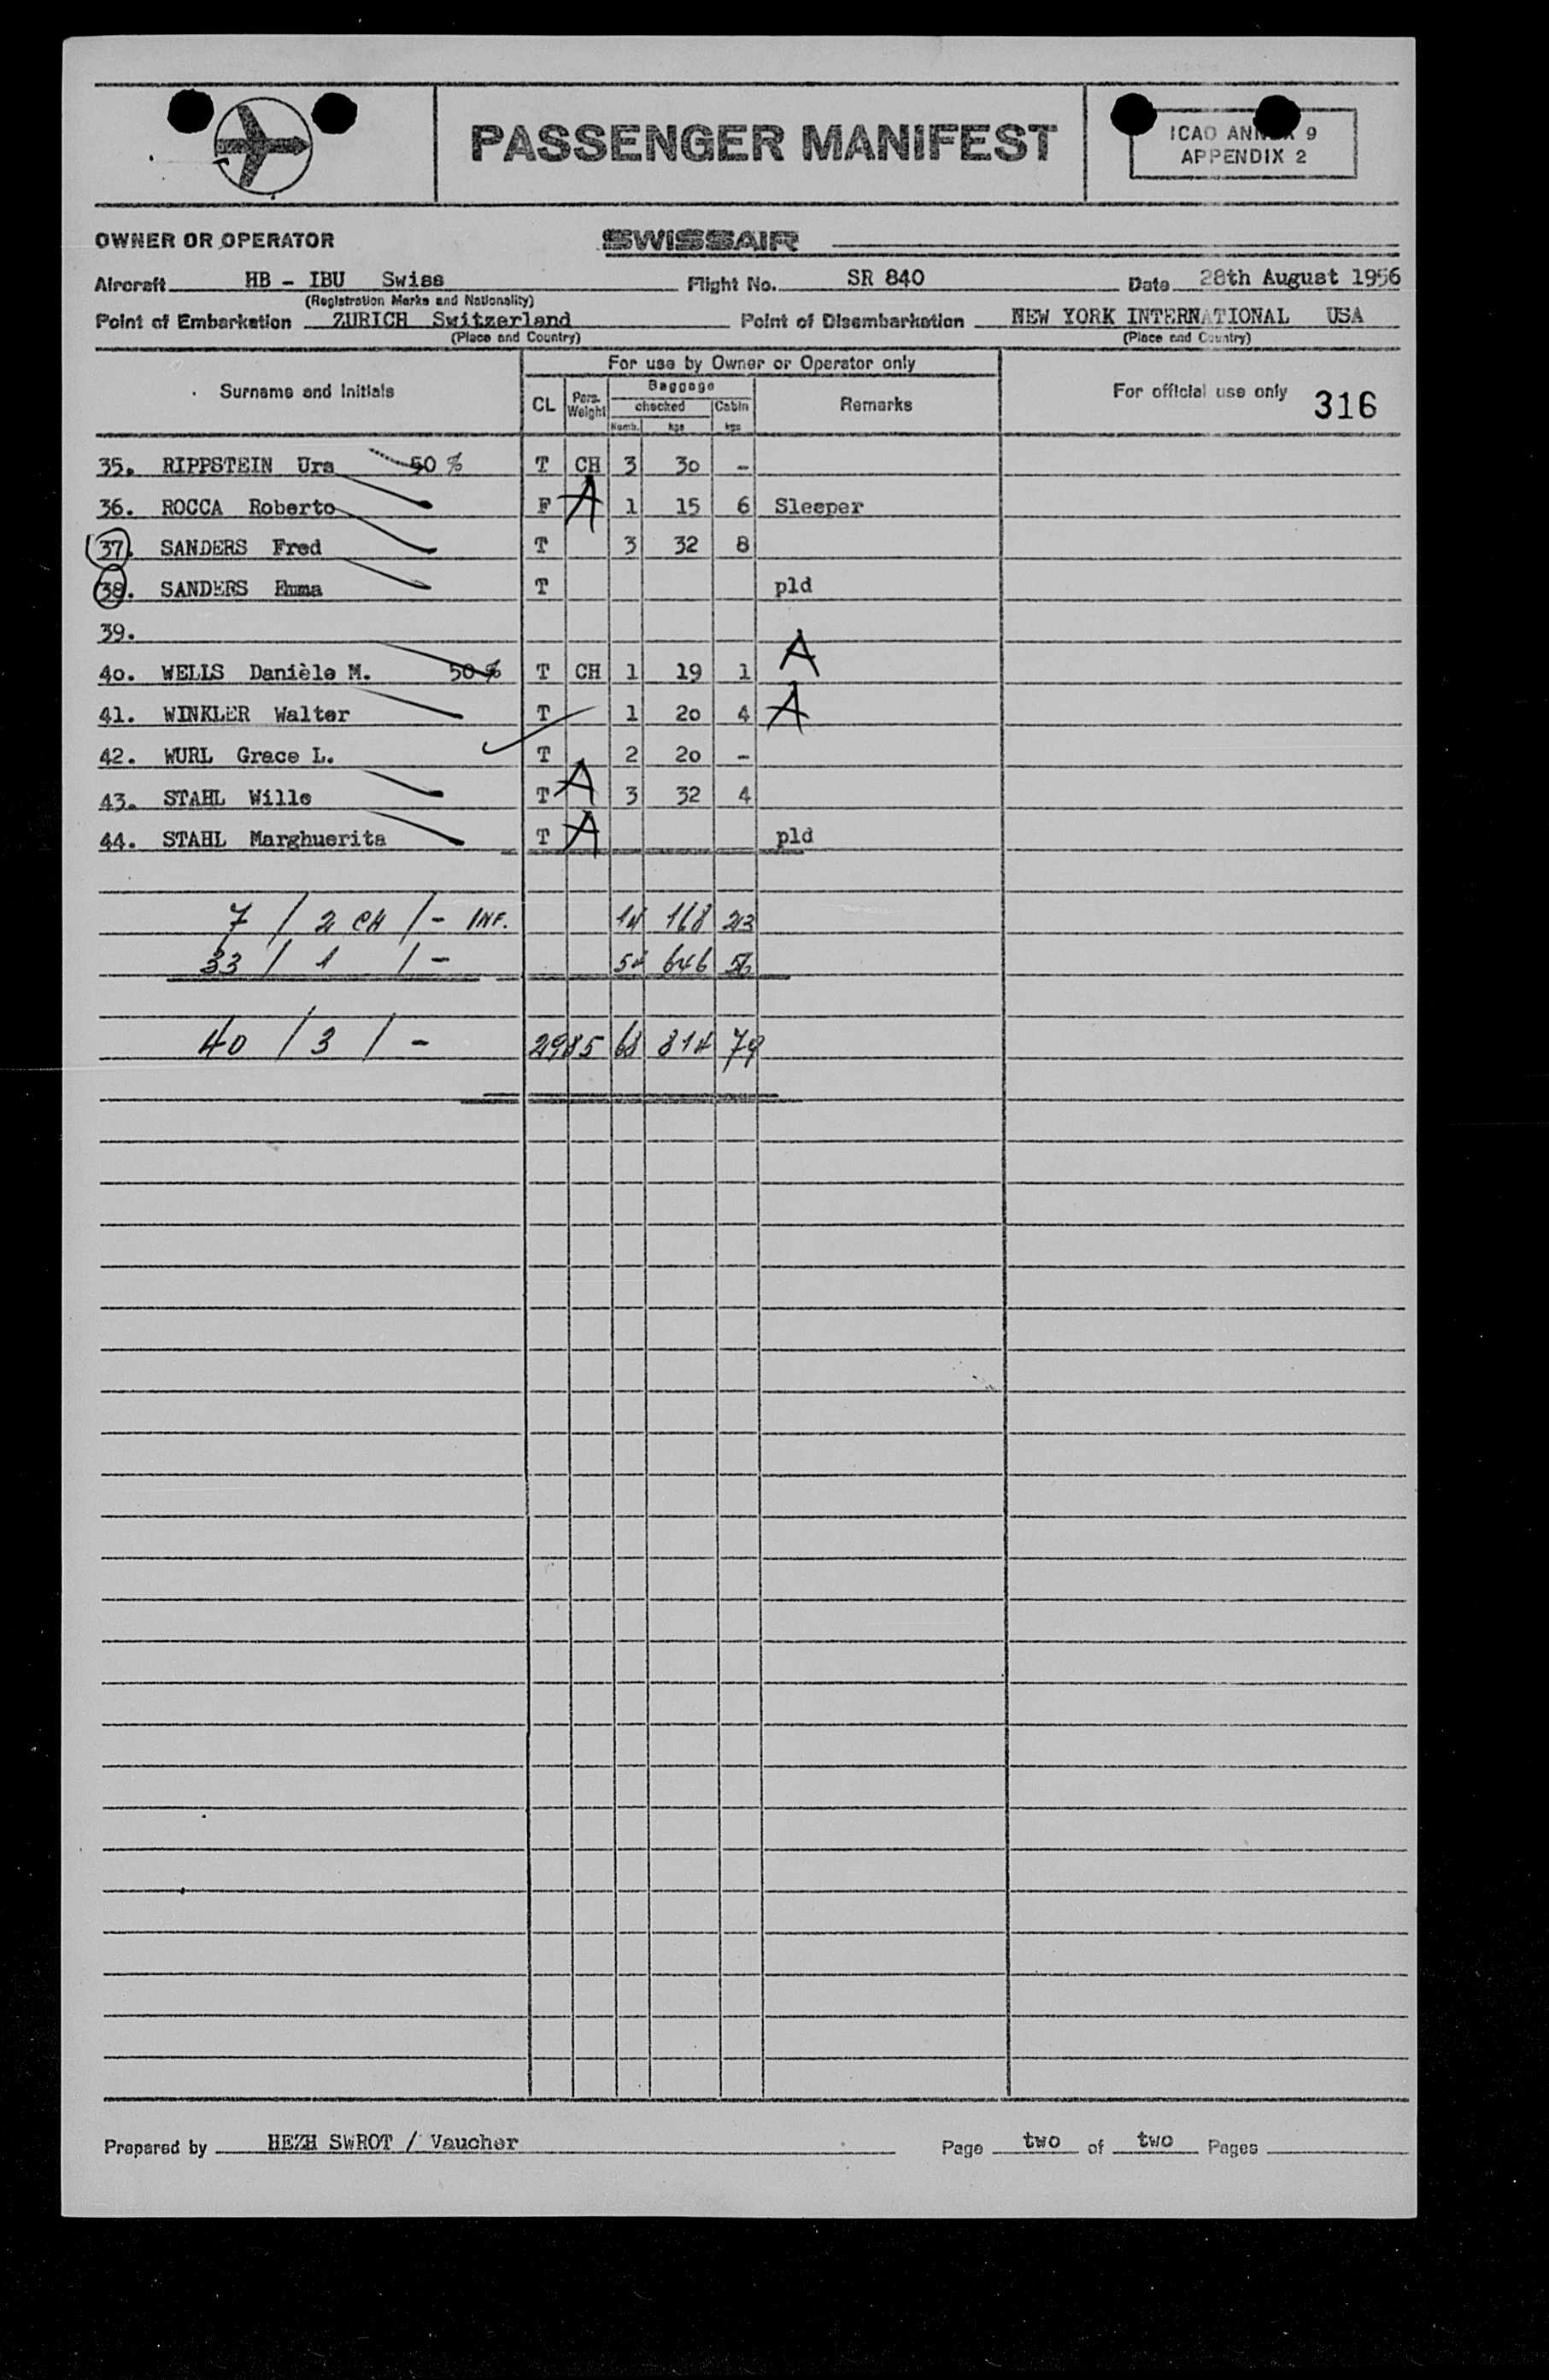 PASSENGER MANIFEST
ICAO ANNEX 9
APPENDIX 2
OWNER OR OPERATOR SWISSAIR
Aircraft HB - IBU Swiss Flight No. SR 840 Date 28th August 1956
(Registration Marks and Nationality)
Point of Embarkation ZURICH Switzerland Point of Disembarkation NEW YORK INTERNATIONAL USA
(Place and Country) (Place and Country)
For use by Owner or Operator only
Surname and Initials CL Pers. Weight Baggage checked Numb. kgs Cabin kgs Remarks For official use only 316
35. RIPPSTEIN Urs 50 % T CH 3 30 -
36. ROCCA Roberto F A 1 15 6 Sleeper
37. SANDERS Fred T 3 32 8
38. SANDERS Emma T pld
39.
40. WELLS Danièle M. 50 % T CH 1 19 1 A
41. WINKLER Walter T 1 20 4 A
42. WURL Grace L. T 2 20 -
43. STAHL Wille T A 3 32 4
44. STAHL Marghuerita T A pld
7 / 2 CH / - INF. 14 168 23
33 / 1 / - 54 646 56
40 / 3 / - 2985 68 814 79
Prepared by HEZH SWROT / Vaucher Page two of two Pages